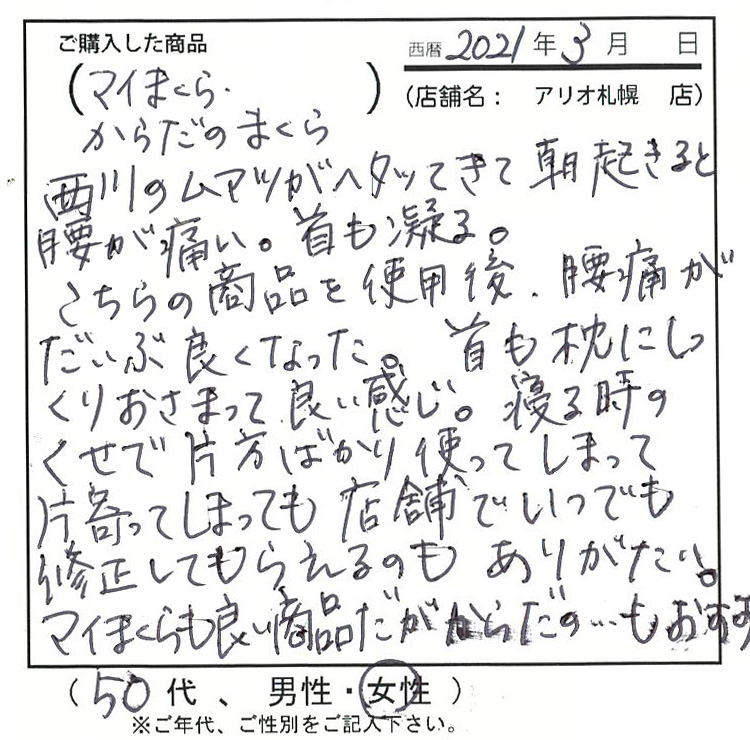 ご購入した商品
西暦 2021 年 3 月 日
(マイまくら・
からだのまくら)
(店舗名: アリオ札幌 店)
西川のムアツがヘタッてきて 朝起きると
腰が痛い。首も凝る。
こちらの商品を使用後、腰痛が
だいぶ良くなった。 首も枕にしっ
くりおさまって良い感じ。寝る時の
くせで片方ばかり使ってしまって
片寄ってしまっても店舗でいつでも
修正してもらえるのも ありがたい。
マイまくらも良い商品だがからだの…もおすす
(50代、男性・女性)
※ご年代、ご性別をご記入下さい。